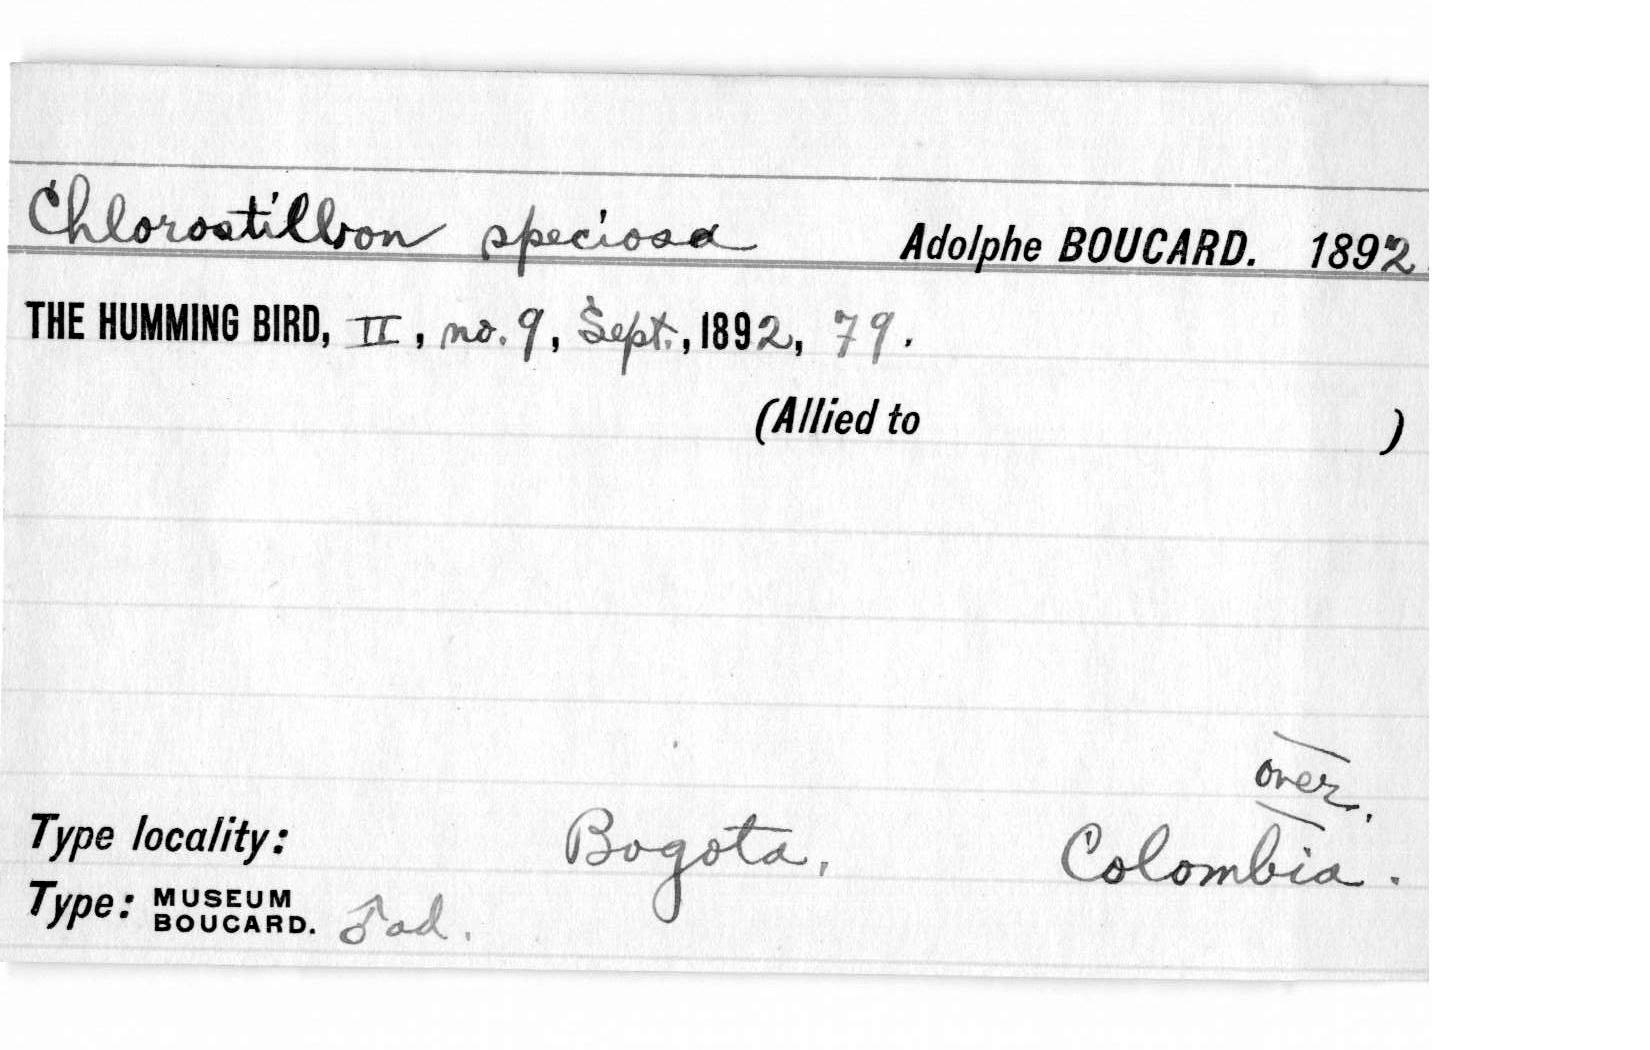 Chlorostilbon speciosa Adolphe BOUCARD. 1892
THE HUMMING BIRD, II, no. 9, Sept., 1892, 79.
(Allied to )
over.
Type locality: Bogota, Colombia.
Type: MUSEUM BOUCARD. ♂ad.